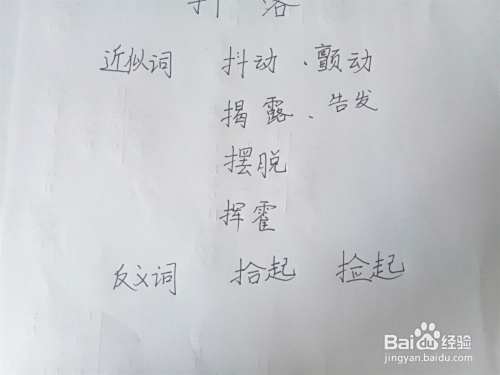 抖落
近似词 抖动、颤动
揭露、告发
摆脱
挥霍
反义词 拾起 捡起
Baidu经验
jingyan.baidu.com